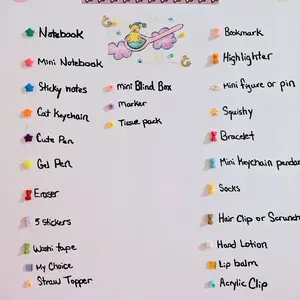 Notebook
Mini Notebook
Sticky notes
Cat Keychain
Cute Pen
Gel Pen
Eraser
5 Stickers
Washi tape
My Choice
Straw Topper
mini Blind Box
marker
Tissue pack
Bookmark
Highlighter
Mini figure or pin
Squishy
Bracelet
Mini Keychain pendan
Socks
Hair Clip or Scrunch
Hand Lotion
Lip balm
Acrylic Clip